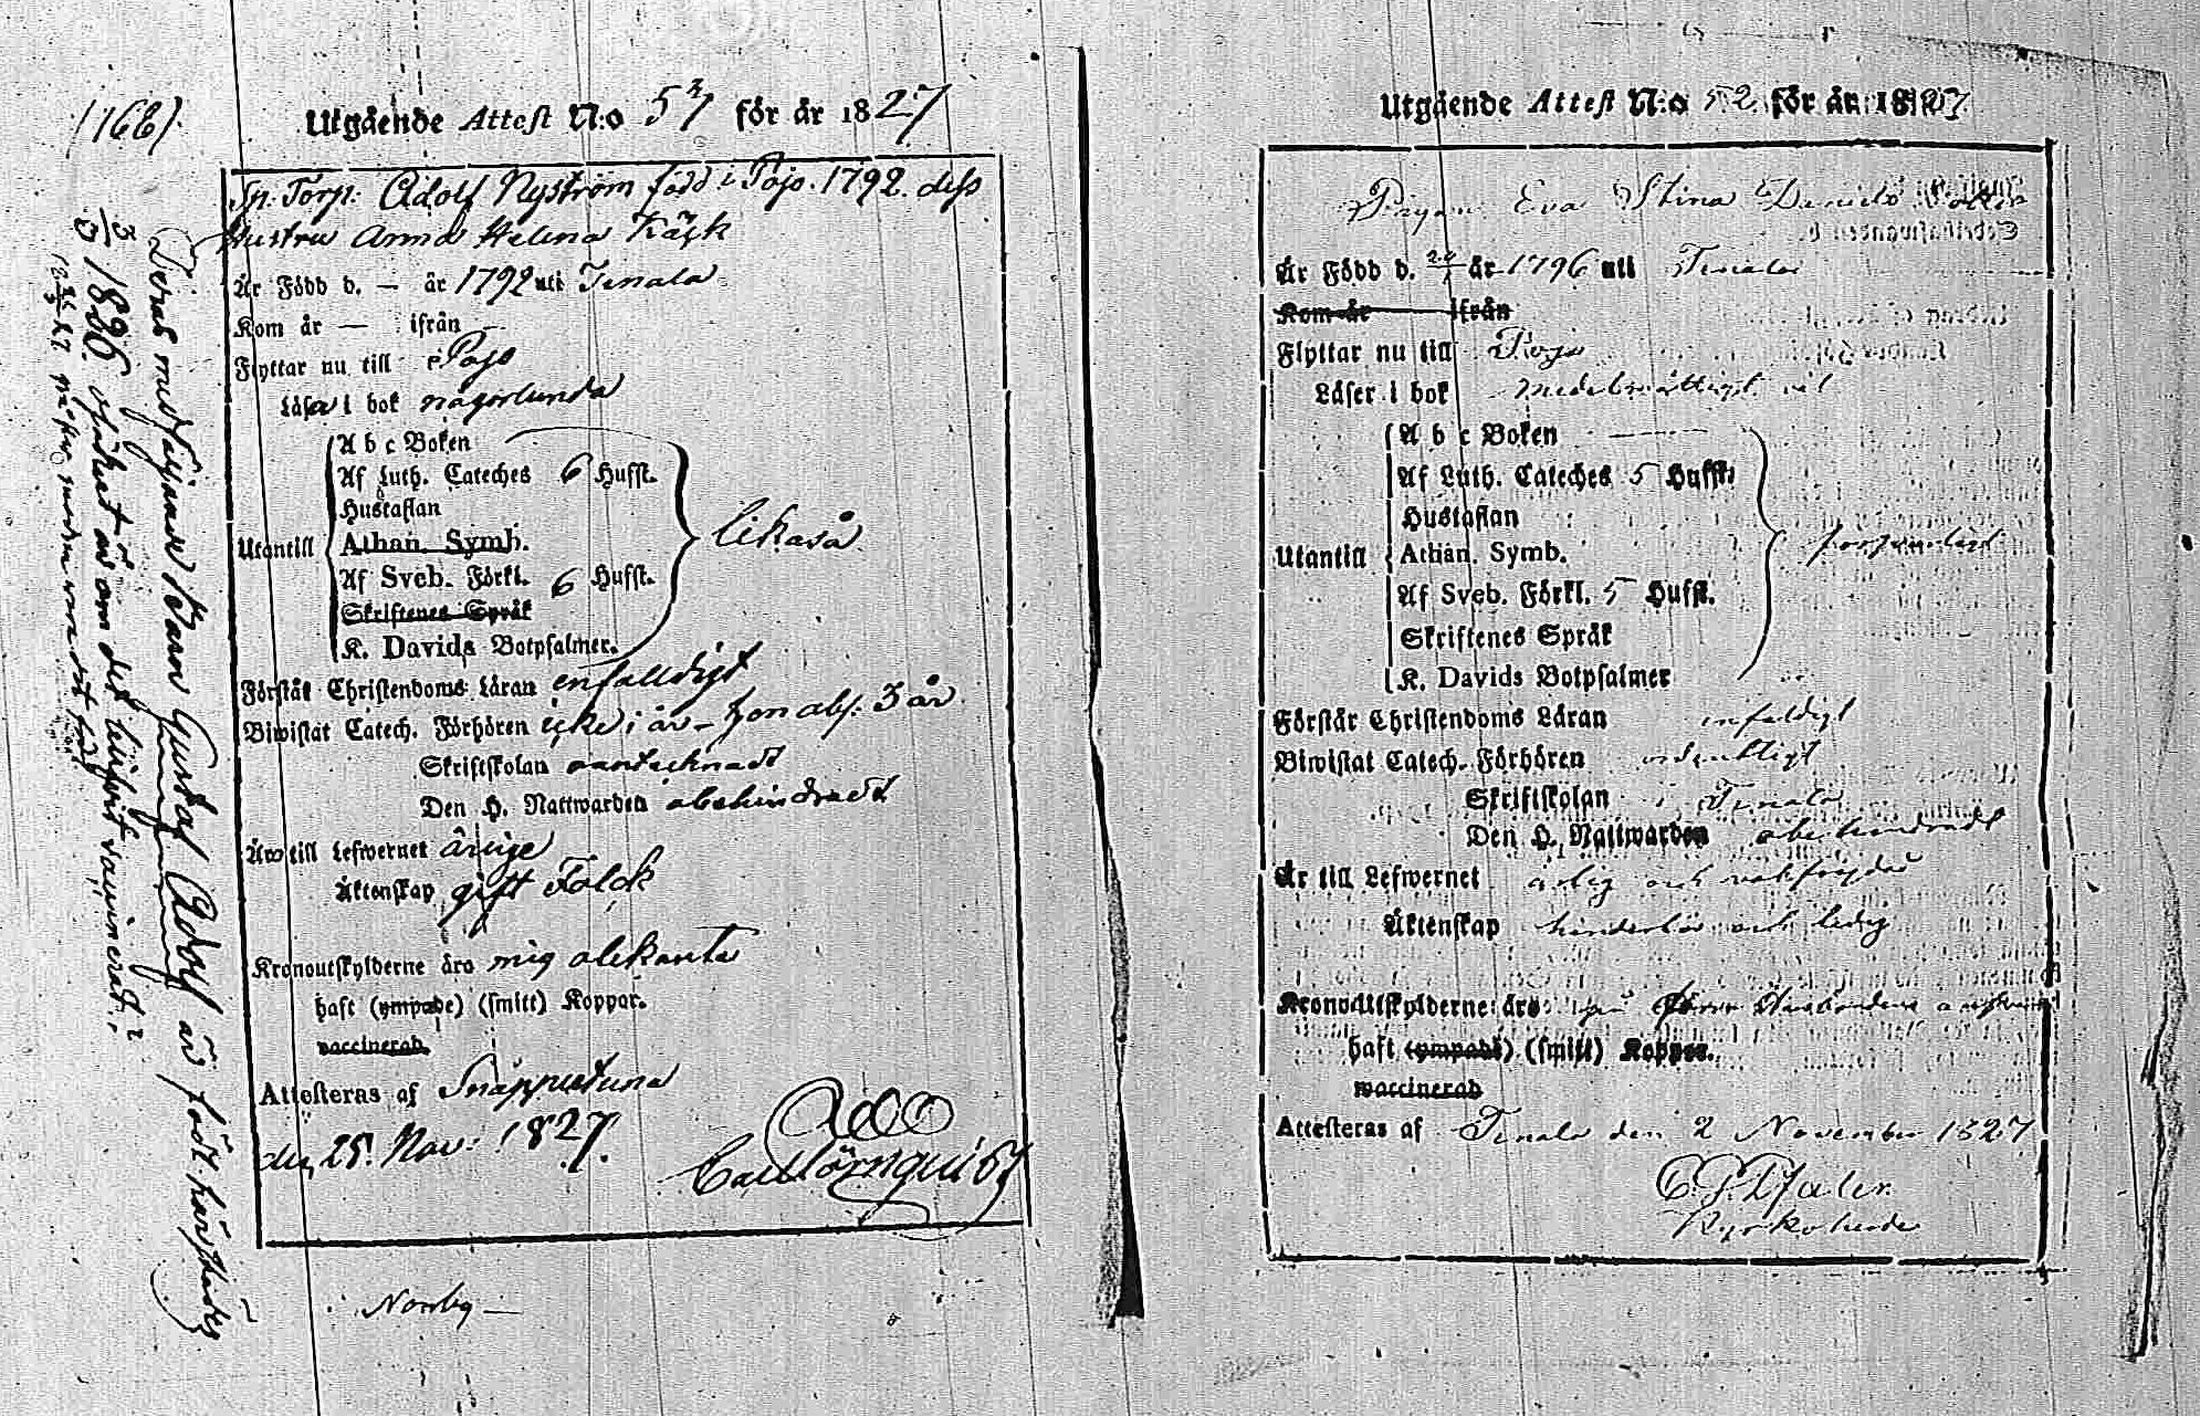 (168)
Utgående Attest N:o 57 för år 1827
Sp. Torp. Adolf Nyström född i Pojo. 1792. dess
Hustru Anna Helena Käck
Är Född d. — år 1792 uti Tenala
Kom år — ifrån —
Flyttar nu till Pojo
Läsa i bok någorlunda
A b c Boken
Af Luth. Cateches 6 Hufst.
Hustaflan
Utantill
Athan. Symb.
likaså
Af Sveb. Förkl. 6 Hufst.
Skriftenes Språk
K. Davids Botpsalmer.
Förstår Christendoms Läran enfalldigt
Biwistat Catech. Förhören icke i år – hon abs. 3 år
Skriftskolan oantecknadt
Den H. Nattwarden obehindradt
Äro till Lefwernet ärlige
Äktenskap gift Folck
Kronoutskylderne äro mig obekanta
haft (ympade) (smitt) Koppor.
vaccinerad
Attesteras af Snappertuna
den 25. Nov. 1827.
Carl Törnquist
Norrby —
Deras medföljande Sven Gustaf Adolf är född härstädes
3/3 1826 ovisst är om det blifvit vaccinerat
Utgående Attest N:o 52 för år 1827
Pigan Eva Stina Daniels
Är Född d. år 1796 uti Tenala
Kom år ifrån
Flyttar nu till Pojo
Läser i bok medelmåttigt väl
A b c Boken
Af Luth. Cateches 5 Hufst.
Hustaflan
Utantill
Athan. Symb.
försvarligt
Af Sveb. Förkl. 5 Hufst.
Skriftenes Språk
K. Davids Botpsalmer
Förstår Christendoms Läran enfaldigt
Biwistat Catech. Förhören ordentligt
Skriftskolan i Tenala
Den H. Nattwarden obehindradt
Är till Lefwernet ärlig och välfrejdad
Äktenskap hinderlös och ledig
Kronoutskylderne äro
haft (ympade) (smitt) Koppor.
vaccinerad
Attesteras af Tenala den 2 November 1827
Kyrkoherde